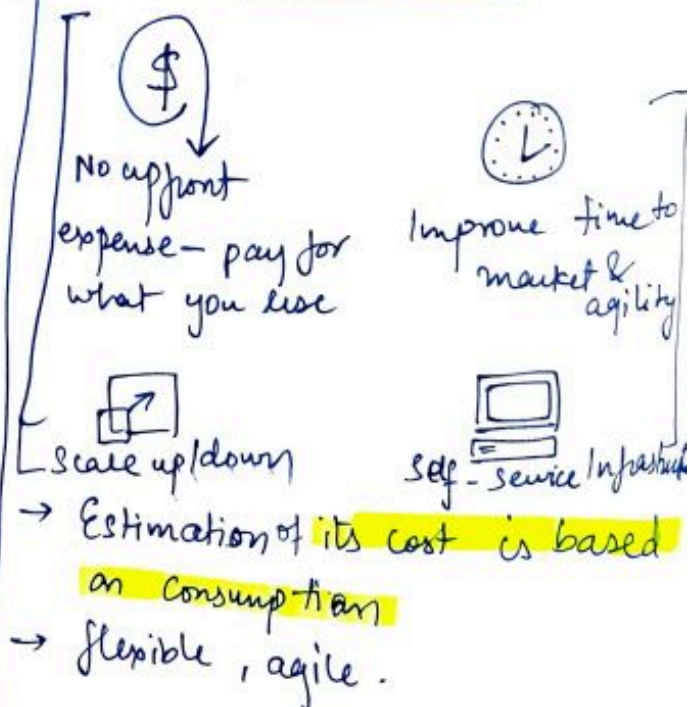 $
No upfront
expense – pay for
what you use
Improve time to
market &
agility
Scale up/down
Self-Service
→ Estimation of its cost is based
on consumption
→ flexible, agile.